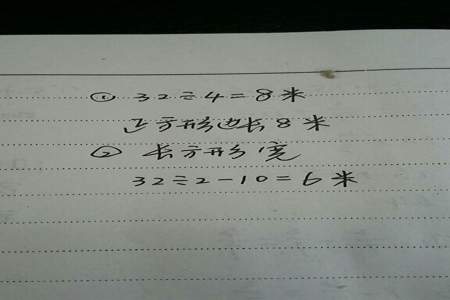 ① 32÷4=8米
正方形边长8米
② 长方形宽
32÷2-10=6米